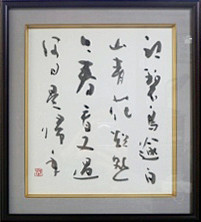 江碧鳥逾白
山青花欲然
今春看又過
何日是帰年